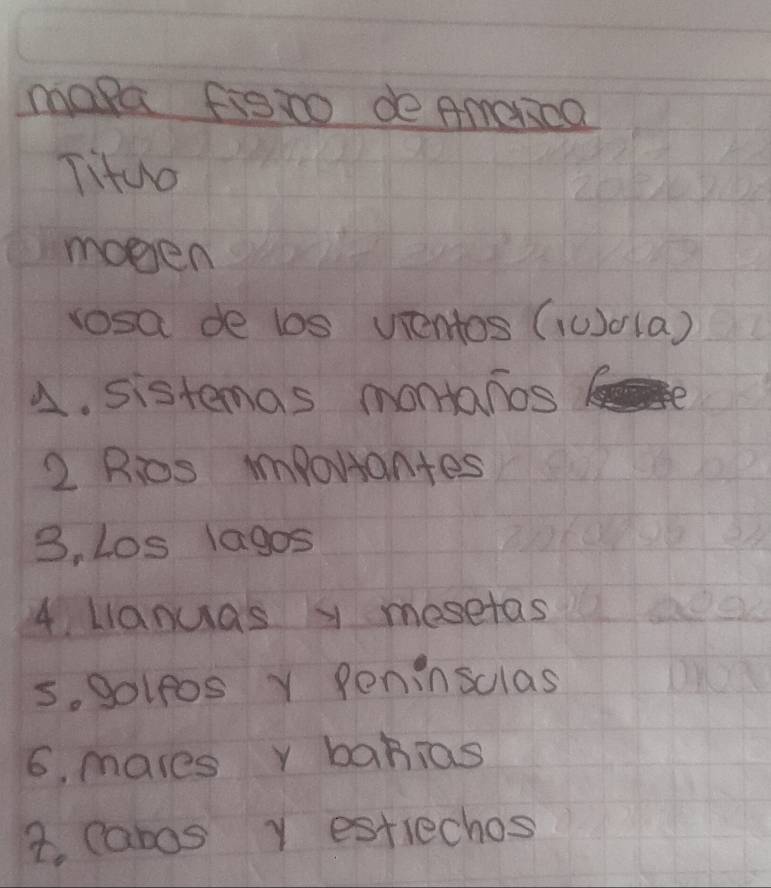 mapa fisico de America
Titulo
mogen
rosa de los vientos
1. sistemas montaños
2 Rios importantes
3. Los lagos
4. Llanuras y mesetas
5. golfos y Peninsulas
6. mares y bahias
7. cabos y estrechos